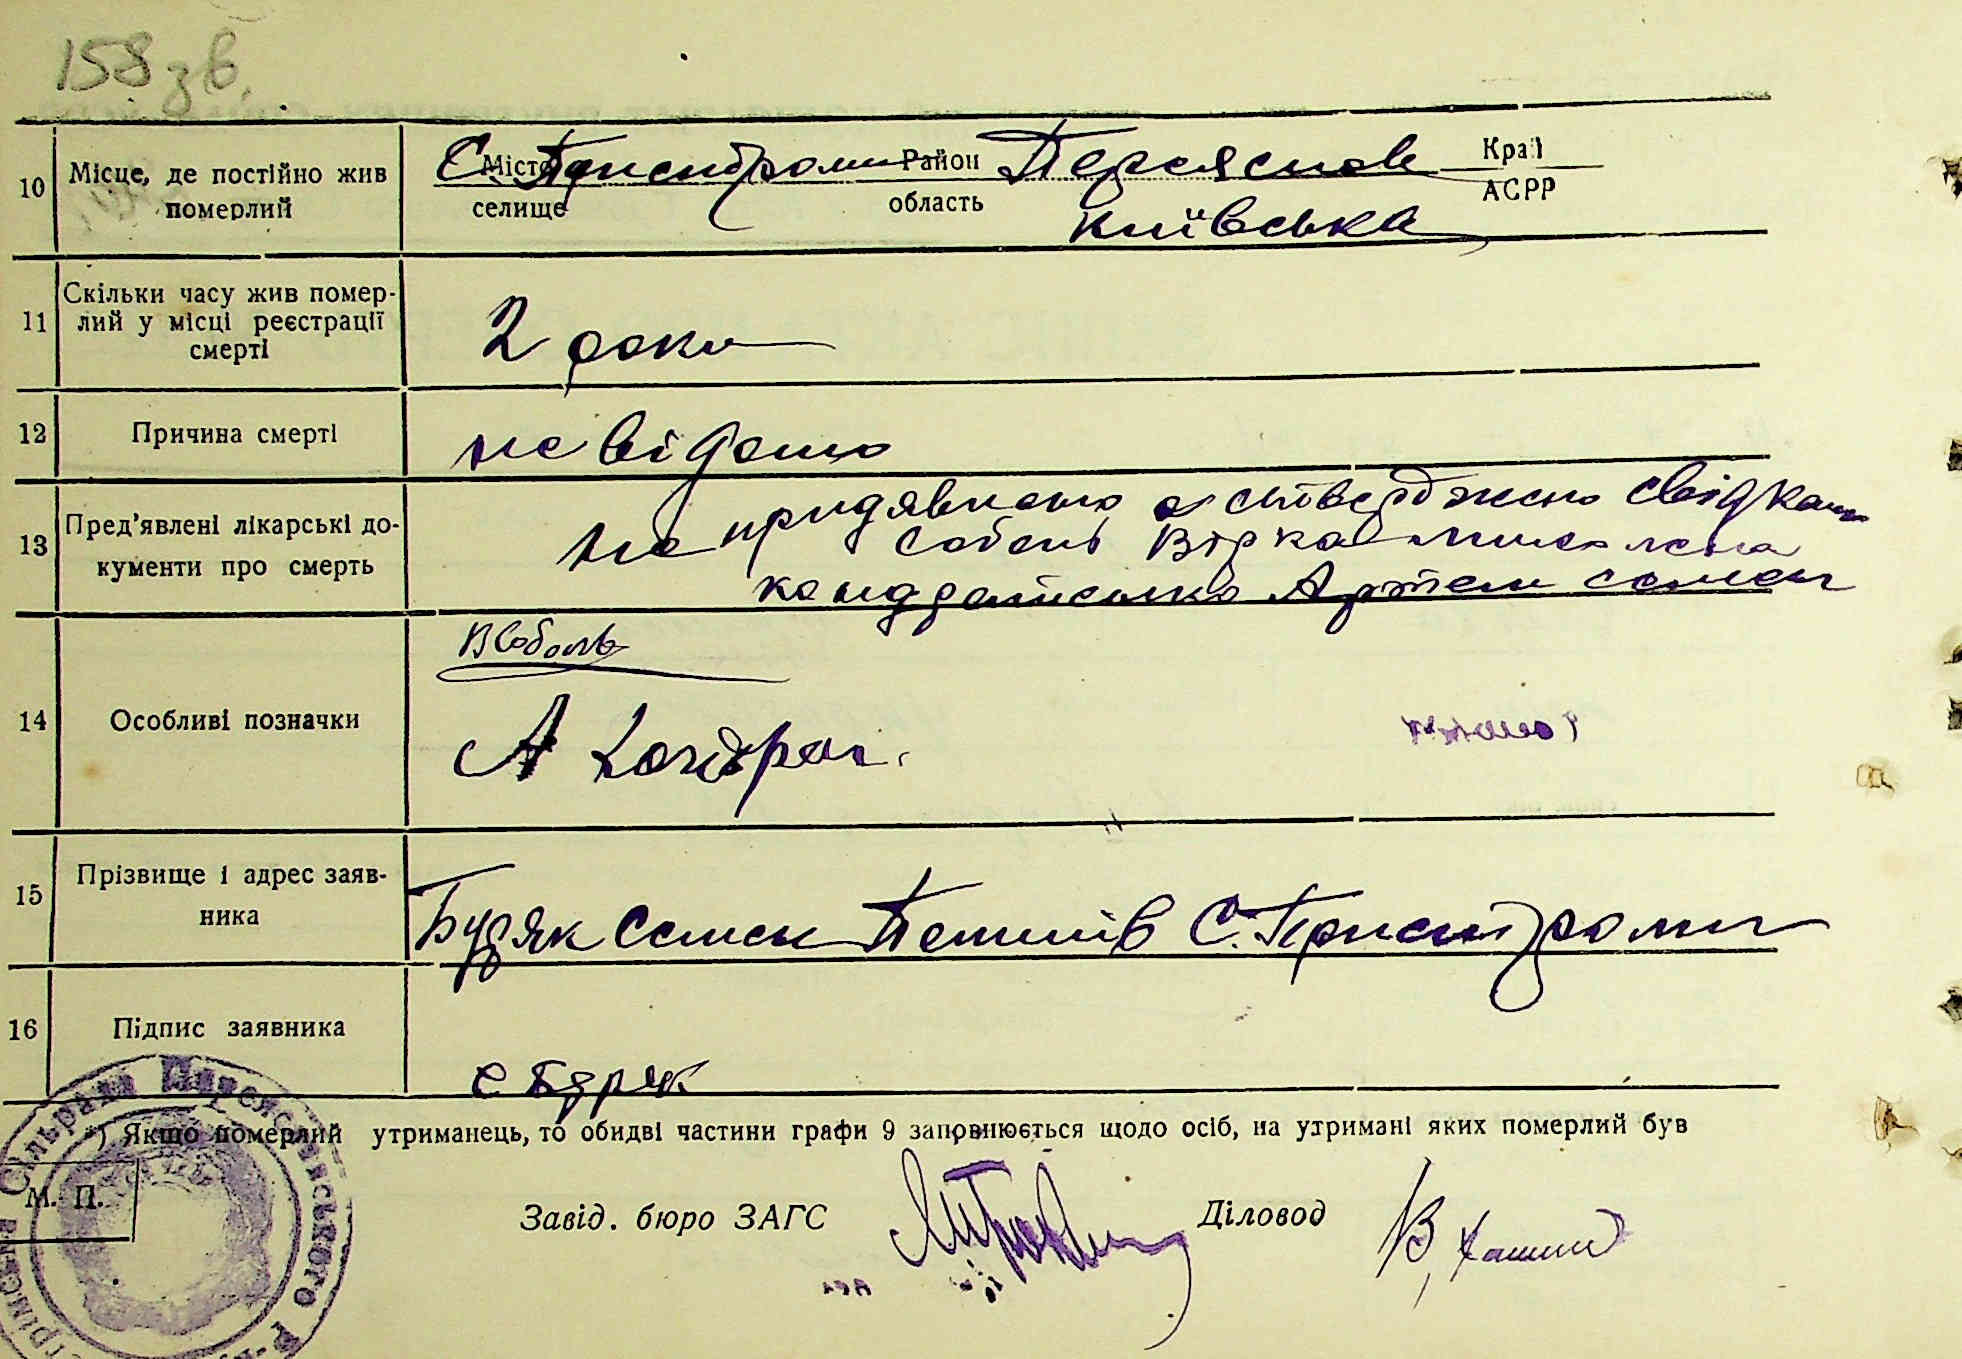 158 зв.
10 Місце, де постійно жив померлий
Місто селище С. Пристроми Район область Переяслов Київська Край АСРР
11 Скільки часу жив помер-
лий у місці реєстрації
смерті
2 роки
12 Причина смерті
не відомо
13 Пред’явлені лікарські до-
кументи про смерть
не придявлено а стверджено свідками
Собень Вірка
Артем
14 Особливі позначки
В Соболь
А Кондрат.
15 Прізвище і адрес заяв-
ника
Буряк Семен С. Пристроми
16 Підпис заявника
С Буряк
*) Якщо померлий утриманець, то обидві частини графи 9 заповнюється щодо осіб, на утримані яких померлий був
М. П.
Завід. бюро ЗАГС
Діловод
Сільрада Переяславського